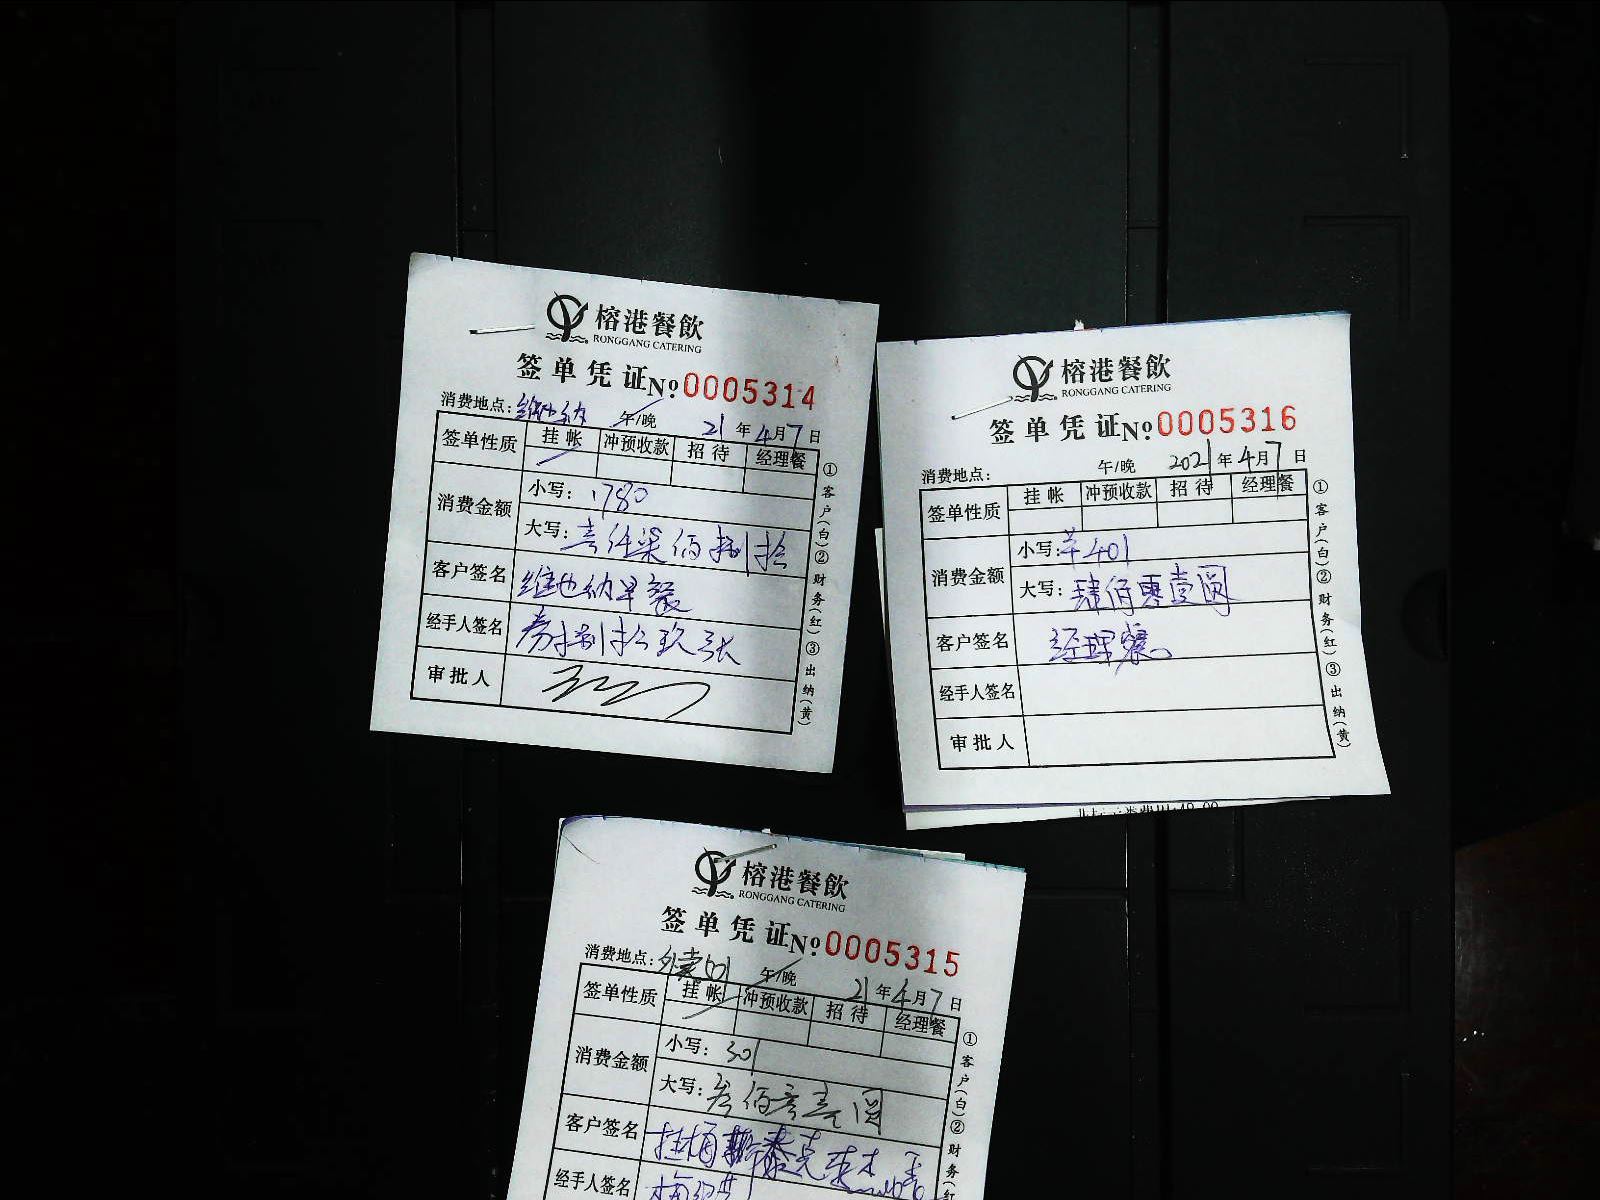 榕港餐飲
RONGGANG CATERING
签单凭证 No 0005314
消费地点：维也纳 午/晚 21年4月7日
签单性质 挂帐 冲预收款 招待 经理餐
消费金额 小写：1780
大写：壹仟柒佰捌拾
客户签名 维也纳早餐
经手人签名 券捌拾玖张
审批人
①客户（白）②财务（红）③出纳（黄）
榕港餐飲
RONGGANG CATERING
签单凭证 No 0005316
消费地点： 午/晚 2021年4月7日
签单性质 挂帐 冲预收款 招待 经理餐
消费金额 小写：401
大写：肆佰零壹圆
客户签名 经理餐
经手人签名
审批人
①客户（白）②财务（红）③出纳（黄）
榕港餐飲
RONGGANG CATERING
签单凭证 No 0005315
消费地点：外卖 午/晚 21年4月7日
签单性质 挂帐 冲预收款 招待 经理餐
消费金额 小写：301
大写：叁佰零壹圆
客户签名 挂梅斯泰克
经手人签名
①客户（白）②财务（红